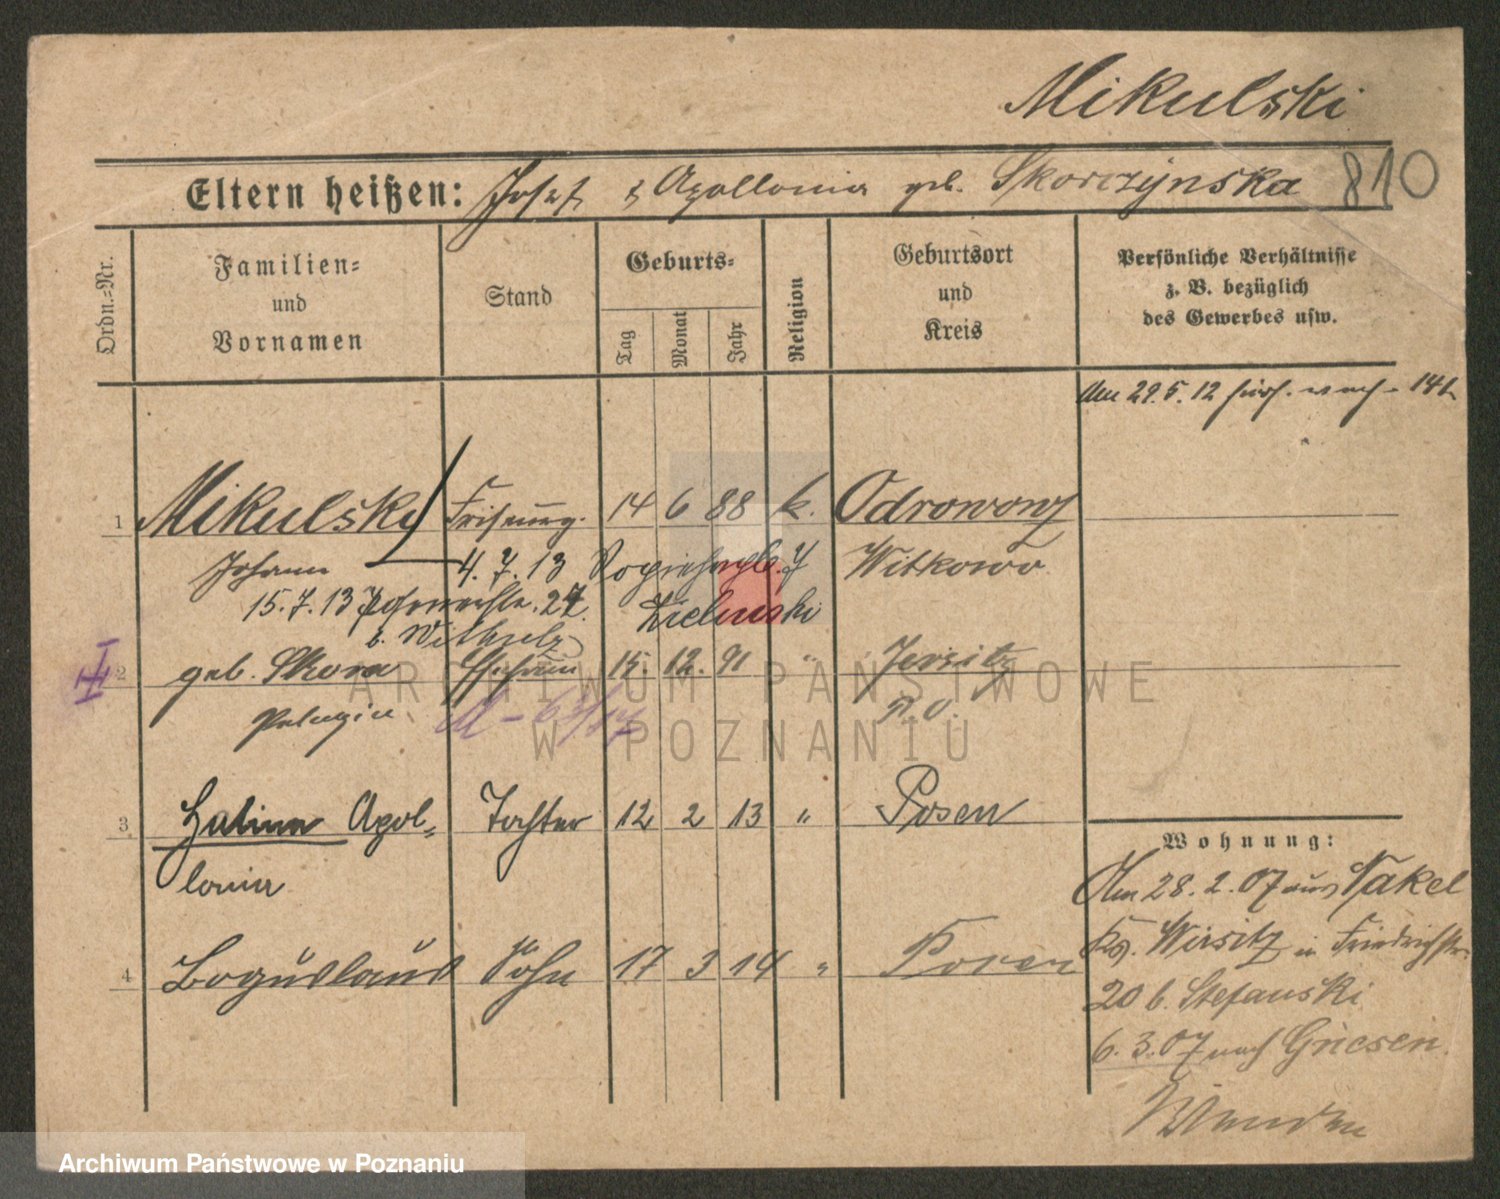 Mikulski
810
Eltern heißen: Josef & Apollonia geb. Skorczynska
Ordn.-Nr.
Familien- und Vornamen
Stand
Geburts-
Tag
Monat
Jahr
Religion
Geburtsort und Kreis
Persönliche Verhältnisse z. B. bezüglich des Gewerbes usw.
Am 29.5.12 nach
1 Mikulski 14 6 88 k. Odrowonz
Johann 4.7.13 Witkowo
15.7.13 24.
Zielinski
2 geb. Skora Ehefrau 15. 12. 91 " Jersitz
Pelagia P. O.
3 Halina Apol- Tochter 12 2 13 " Posen
lonia
4 Boguslaus Sohn 17 3 14 " Posen
Wohnung:
Am 28.2.07 aus Nakel
Krs. Wirsitz in Friedrichstr.
20 b. Stefanski
6.3.07 nach Gnesen
Wenden
ARCHIWUM PAŃSTWOWE
W POZNANIU
Archiwum Państwowe w Poznaniu